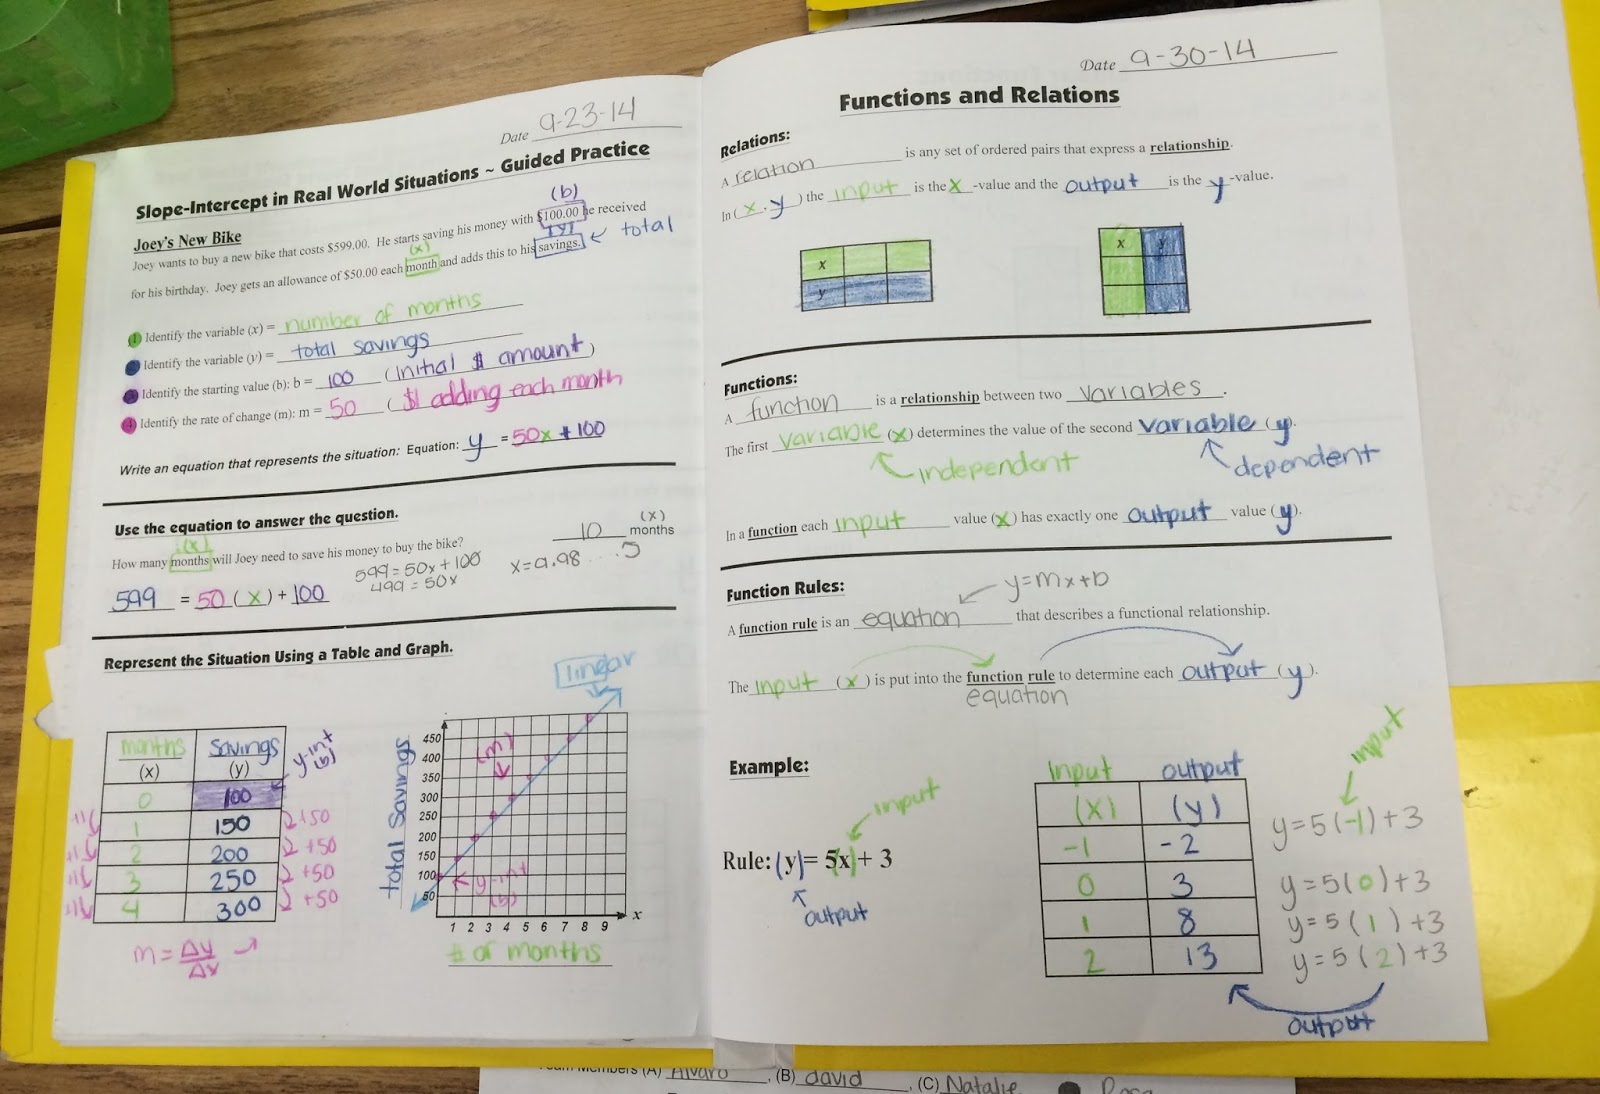 Date 9-23-14
Slope-Intercept in Real World Situations ~ Guided Practice
Joey's New Bike
(b)
Joey wants to buy a new bike that costs $599.00. He starts saving his money with $100.00 he received
(x) (y)
for his birthday. Joey gets an allowance of $50.00 each month and adds this to his savings. ← total
1 Identify the variable (x) = number of months
Identify the variable (y) = total savings
Identify the starting value (b): b = 100 (initial $ amount)
4 Identify the rate of change (m): m = 50 ($ adding each month
Write an equation that represents the situation: Equation: y = 50x + 100
Use the equation to answer the question.
(x)
How many months will Joey need to save his money to buy the bike?
10 months
(x)
599 = 50 (x) + 100
599 = 50x + 100
499 = 50x
x = 9.98
Represent the Situation Using a Table and Graph.
months savings
(x) (y)
0 100
1 150
2 200
3 250
4 300
y-int
(b)
+1 +50
+1 +50
+1 +50
+1 +50
m = Δy
Δx
linear
total savings
450
400
350
300
250
200
150
100
50
(m)
y-int
(b)
1 2 3 4 5 6 7 8 9 x
# of months
Date 9-30-14
Functions and Relations
Relations:
A relation is any set of ordered pairs that express a relationship.
In (x, y) the input is the x -value and the output is the y -value.
x
y
x y
Functions:
A function is a relationship between two variables.
The first variable (x) determines the value of the second variable (y).
independent
dependent
In a function each input value (x) has exactly one output value (y).
Function Rules:
y=mx+b
A function rule is an equation that describes a functional relationship.
The input (x) is put into the function rule to determine each output (y).
equation
Example:
input
Rule: (y) = 5(x) + 3
output
input output
(x) (y)
-1 -2
0 3
1 8
2 13
input
y=5(-1)+3
y=5(0)+3
y=5(1)+3
y=5(2)+3
output
Members (A) Alvaro, (B) david, (C) Natalie